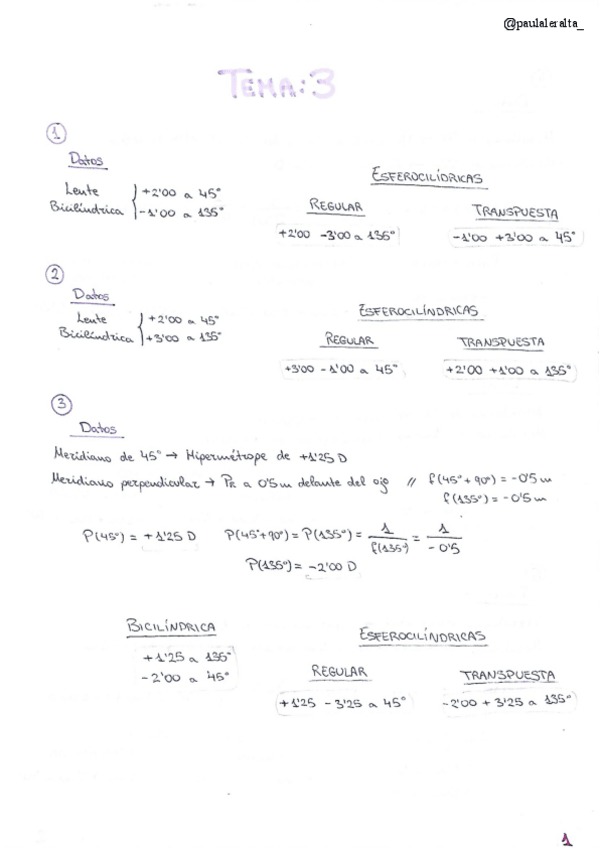 @paulaleralta_
TEMA: 3
1
Datos
Lente
Bicilíndrica
+2'00 a 45°
-1'00 a 135°
ESFEROCILÍDRICAS
REGULAR
TRANSPUESTA
+2'00 -3'00 a 135°
-1'00 +3'00 a 45°
2
Datos
Lente
Bicilíndrica
+2'00 a 45°
+3'00 a 135°
ESFEROCILÍNDRICAS
REGULAR
TRANSPUESTA
+3'00 -1'00 a 45°
+2'00 +1'00 a 135°
3
Datos
Meridiano de 45° → Hipermétrope de +1'25 D
Meridiano perpendicular → PR a 0'5 m delante del ojo // f(45°+90°) = -0'5 m
f(135°) = -0'5 m
P(45°) = +1'25 D P(45°+90°) = P(135°) = 1/f(135°) = 1/-0'5
P(135°) = -2'00 D
BICILÍNDRICA
+1'25 a 135°
-2'00 a 45°
ESFEROCILÍNDRICAS
REGULAR
TRANSPUESTA
+1'25 -3'25 a 45°
-2'00 +3'25 a 135°
1